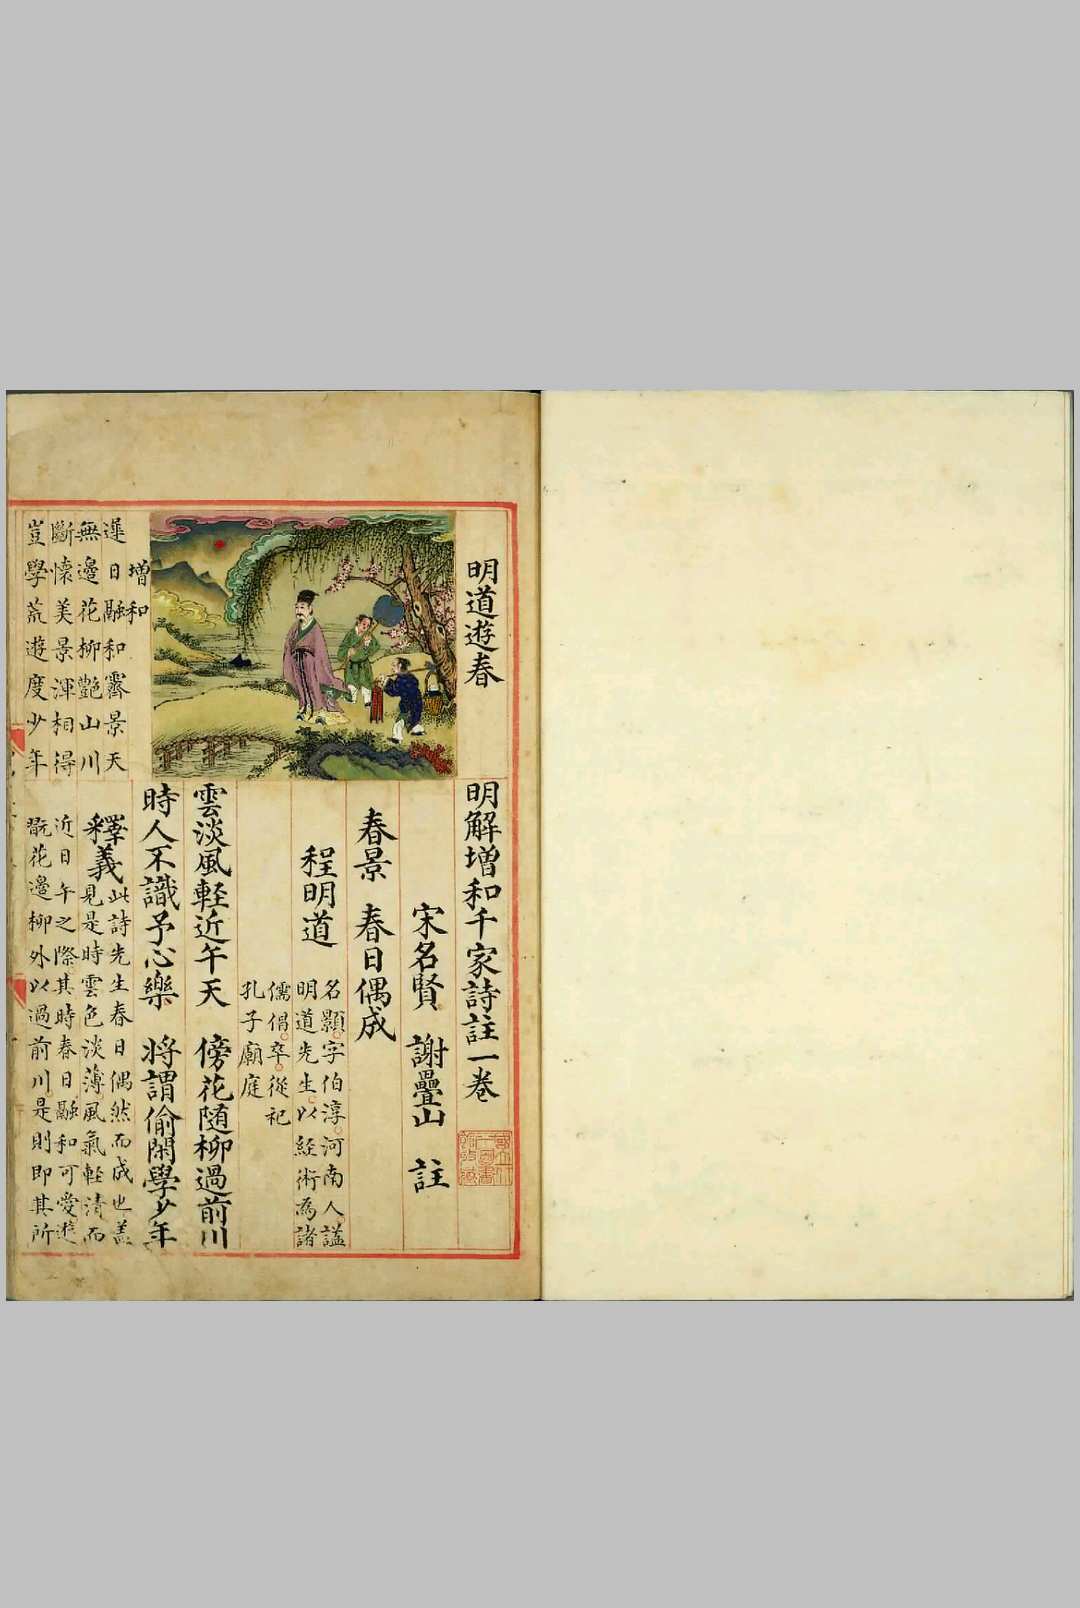 明道遊春
明解增和千家詩註一卷
宋名賢 謝疊山 註
春景 春日偶成
程明道
名顥字伯淳河南人謚
明道先生以経術為諸
儒倡卒從祀
孔子廟庭
雲淡風軽近午天 傍花随柳過前川
時人不識予心樂 将謂偷閑學少年
增和
遲日融和霽景天
無邊花柳艶山川
斷懐美景渾相得
豈學荒遊度少年
釋義
此詩先生春日偶然而成也盖
見是時雲色淡薄風氣軽清而
近日午之際其時春日融和可愛遊
翫花邊柳外以過前川是則即其所